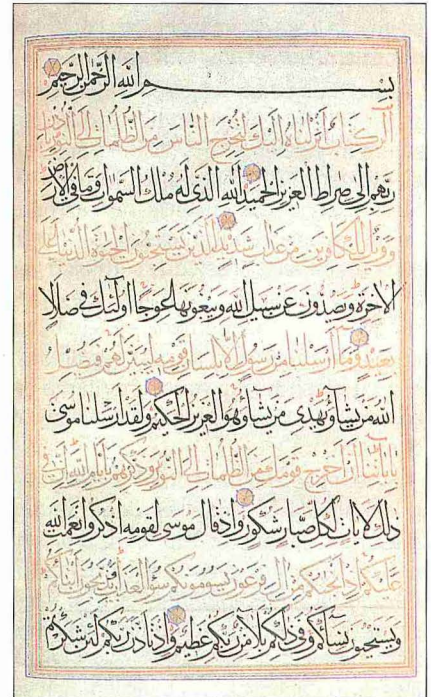 بسم الله الرحمن الرحيم
الر كتاب انزلناه اليك لتخرج الناس من الظلمات الى النور باذن
ربهم الى صراط العزيز الحميد الله الذى له ملك السموات وما فى الارض
وويل للكافرين من عذاب شديد الذين يستحبون الحيوة الدنيا على
الاخرة ويصدون عن سبيل الله ويبغونها عوجا اولئك فى ضلال
بعيد وما ارسلنا من رسول الا بلسان قومه ليبين لهم فيضل
الله من يشاء ويهدى من يشاء وهو العزيز الحكيم ولقد ارسلنا موسى
باياتنا ان اخرج قومك من الظلمات الى النور وذكرهم بايام الله ان فى
ذلك لايات لكل صبار شكور واذ قال موسى لقومه اذكروا نعمت الله
عليكم اذ انجيكم من ال فرعون يسومونكم سوء العذاب ويذبحون ابناءكم
ويستحيون نساءكم وفى ذلكم بلاء من ربكم عظيم واذ تاذن ربكم لئن شكرتم